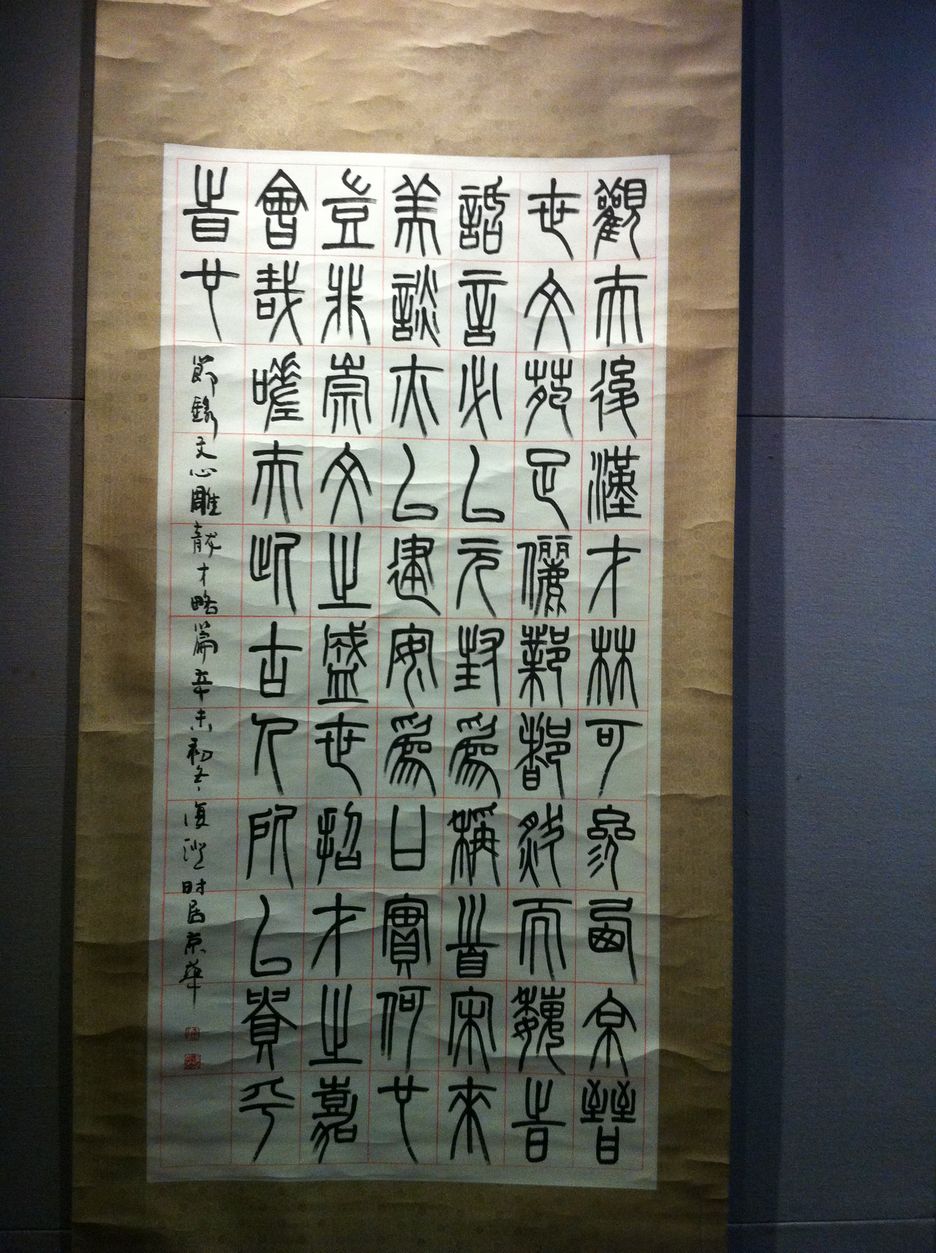 觀夫後漢才林可參西京晉
世文苑足儷鄴都然而魏時
話言必以元封為稱首宋來
美談亦以建安為口實何也
豈非崇文之盛世招才之嘉
會哉嗟夫此古人所以貴乎
時也
節錄文心雕龍才略篇辛未初冬復澄時居京華